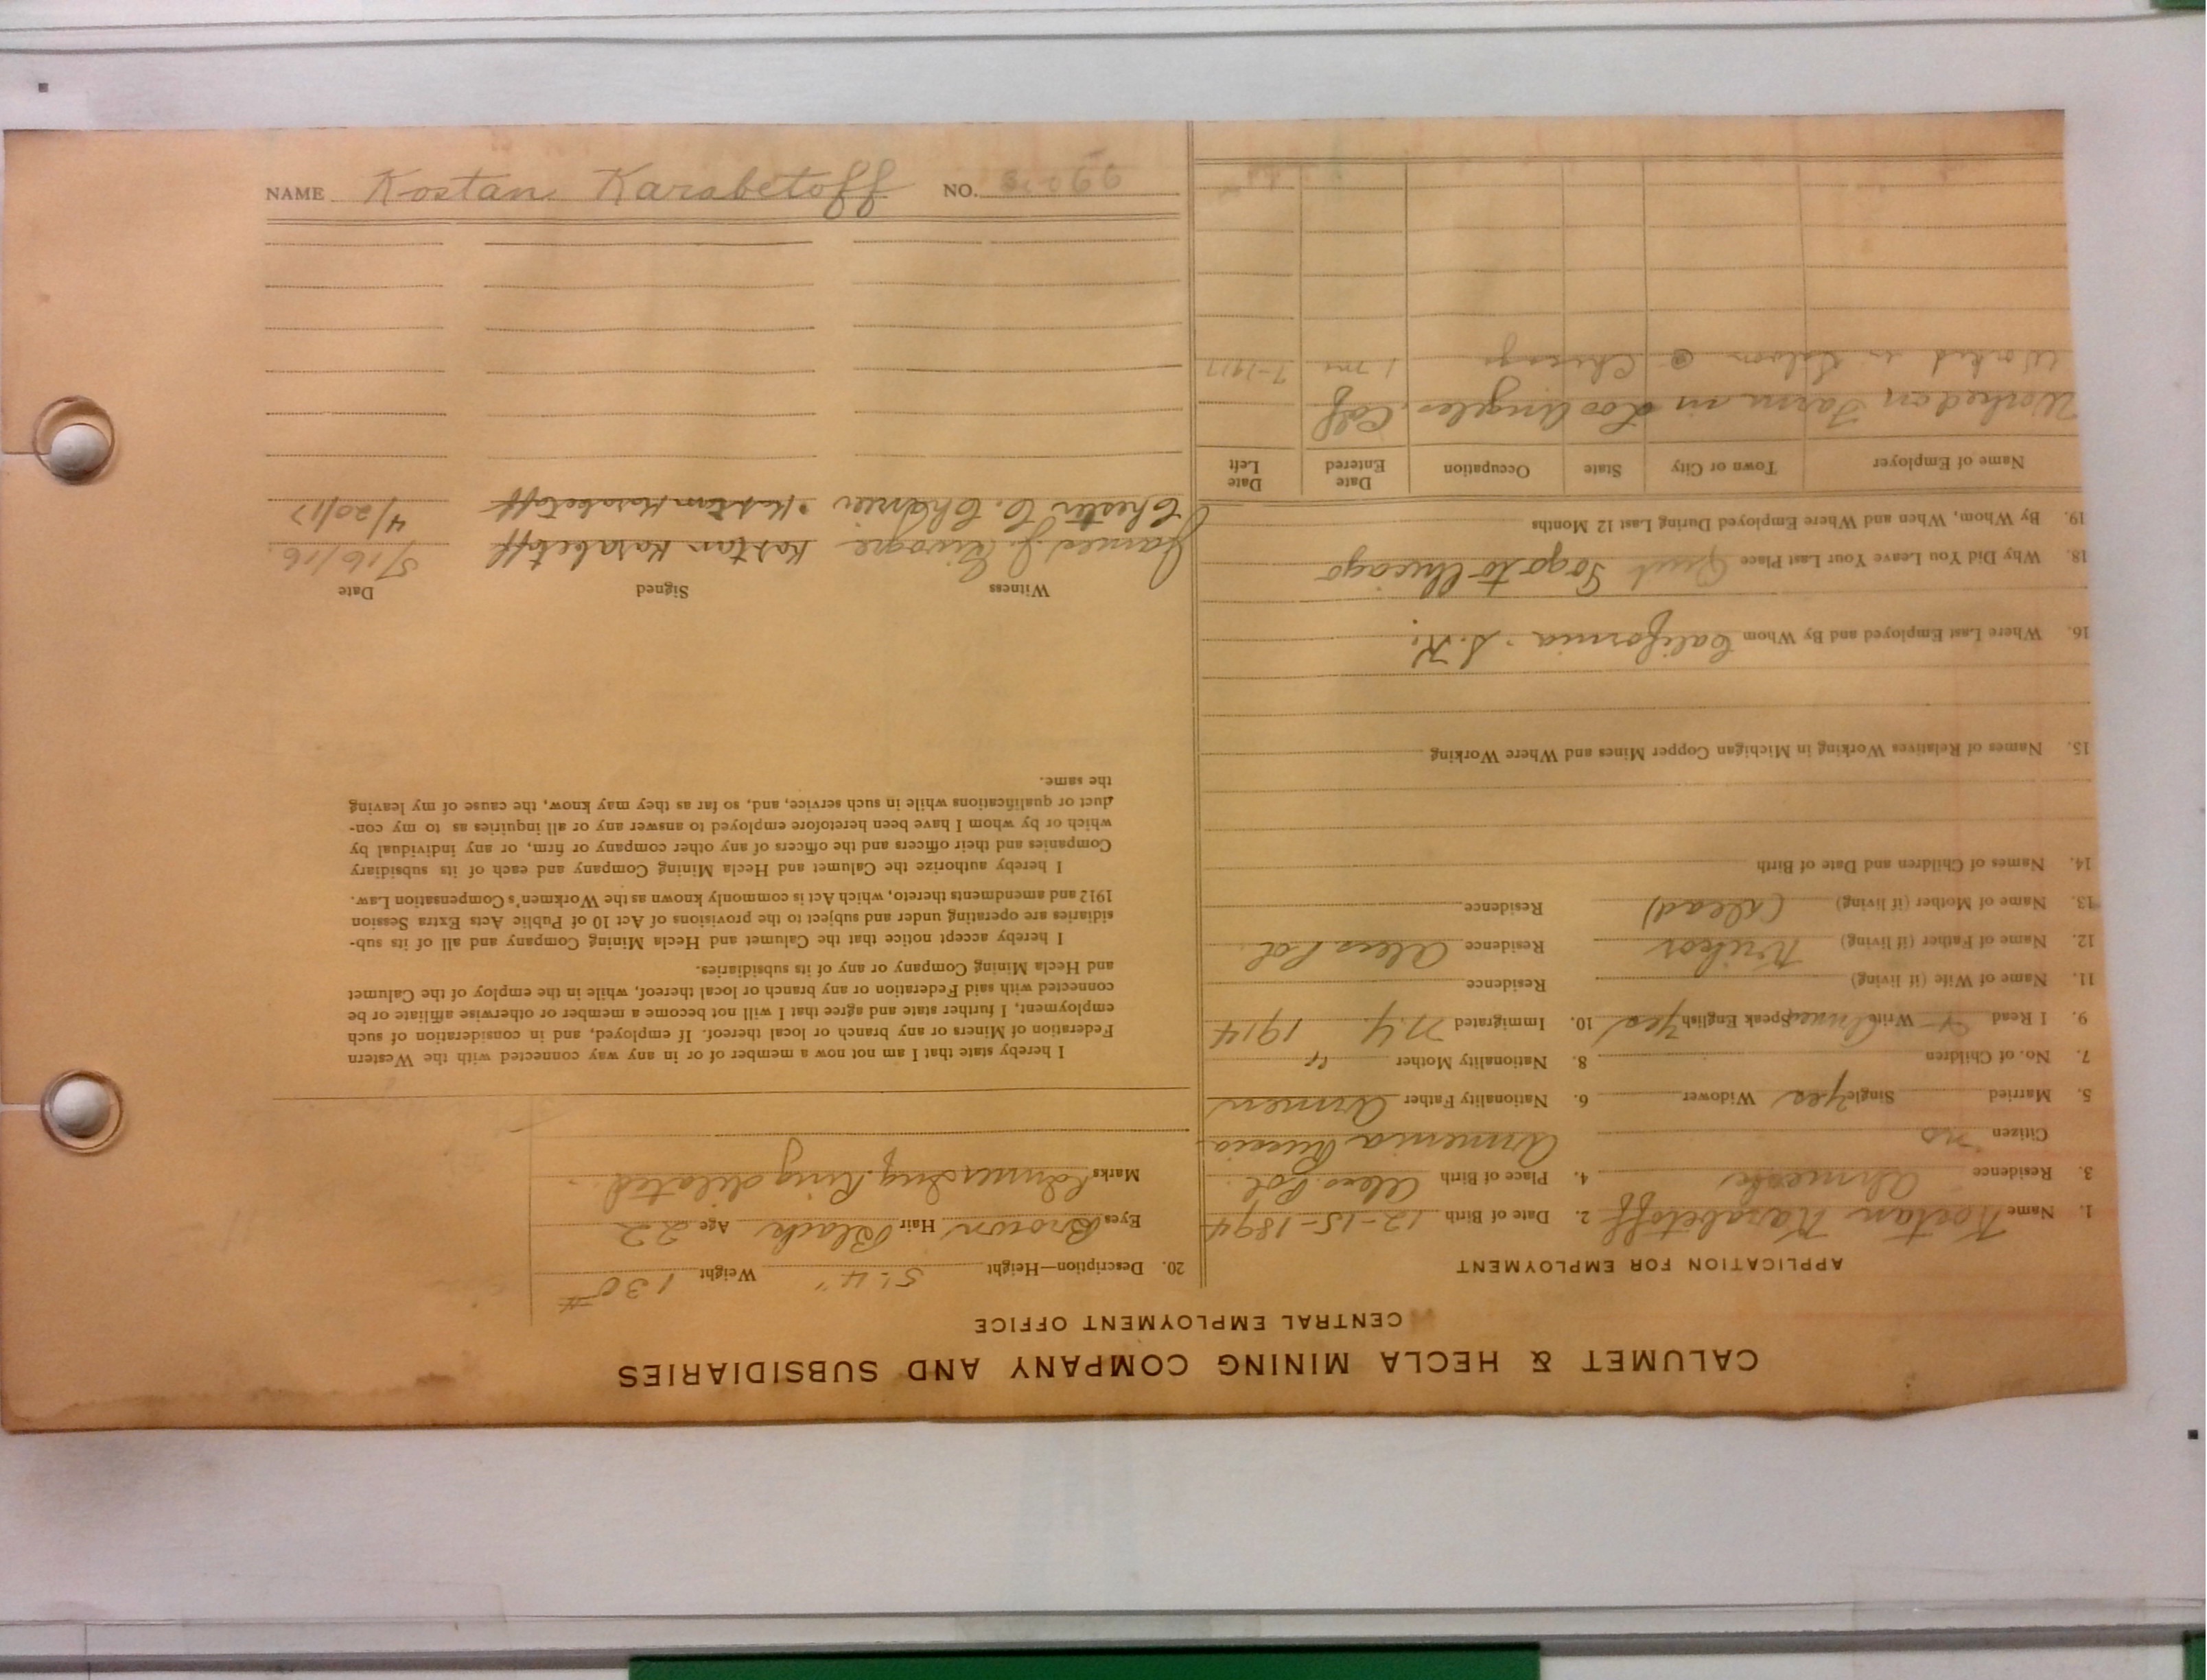 CALUMET & HECLA MINING COMPANY AND SUBSIDIARIES
CENTRAL EMPLOYMENT OFFICE
APPLICATION FOR EMPLOYMENT
1. Name Kostan Karabetoff 2. Date of Birth 12-15-1894
3. Residence Ahmeek 4. Place of Birth Alex. Pol.
Citizen no Armenia Russia
5. Married Single Yes Widower 6. Nationality Father Armen
7. No. of Children 8. Nationality Mother "
9. I Read Write Speak English Yes 10. Immigrated N.Y. 1914
11. Name of Wife (if living) Residence
12. Name of Father (if living) Residence Alex Pol.
13. Name of Mother (if living) (Dead) Residence
14. Names of Children and Date of Birth
15. Names of Relatives Working in Michigan Copper Mines and Where Working
16. Where Last Employed and By Whom California
18. Why Did You Leave Your Last Place Quit To go to Chicago
19. By Whom, When and Where Employed During Last 12 Months
Name of Employer Town or City State Occupation Date Entered Date Left
Worked on Farm in Los Angeles, Calf
Worked in Saloon @ Chicago 1 mo 1917
20. Description—Height 5' 4" Weight 130#
Eyes Brown Hair Black Age 22
Marks Ring dilated
I hereby state that I am not now a member of or in any way connected with the Western
Federation of Miners or any branch or local thereof. If employed, and in consideration of such
employment, I further state and agree that I will not become a member or otherwise affiliate or be
connected with said Federation or any branch or local thereof, while in the employ of the Calumet
and Hecla Mining Company or any of its subsidiaries.
I hereby accept notice that the Calumet and Hecla Mining Company and all of its sub-
sidiaries are operating under and subject to the provisions of Act 10 of Public Acts Extra Session
1912 and amendments thereto, which Act is commonly known as the Workmen's Compensation Law.
I hereby authorize the Calumet and Hecla Mining Company and each of its subsidiary
Companies and their officers and the officers of any other company or firm, or any individual by
which or by whom I have been heretofore employed to answer any or all inquiries as to my con-
duct or qualifications while in such service, and, so far as they may know, the cause of my leaving
the same.
Witness Signed Date
James J. Kostan Karabetoff 5/16/16
Chester C. Kostan Karabetoff 4/20/17
NAME Kostan Karabetoff NO.